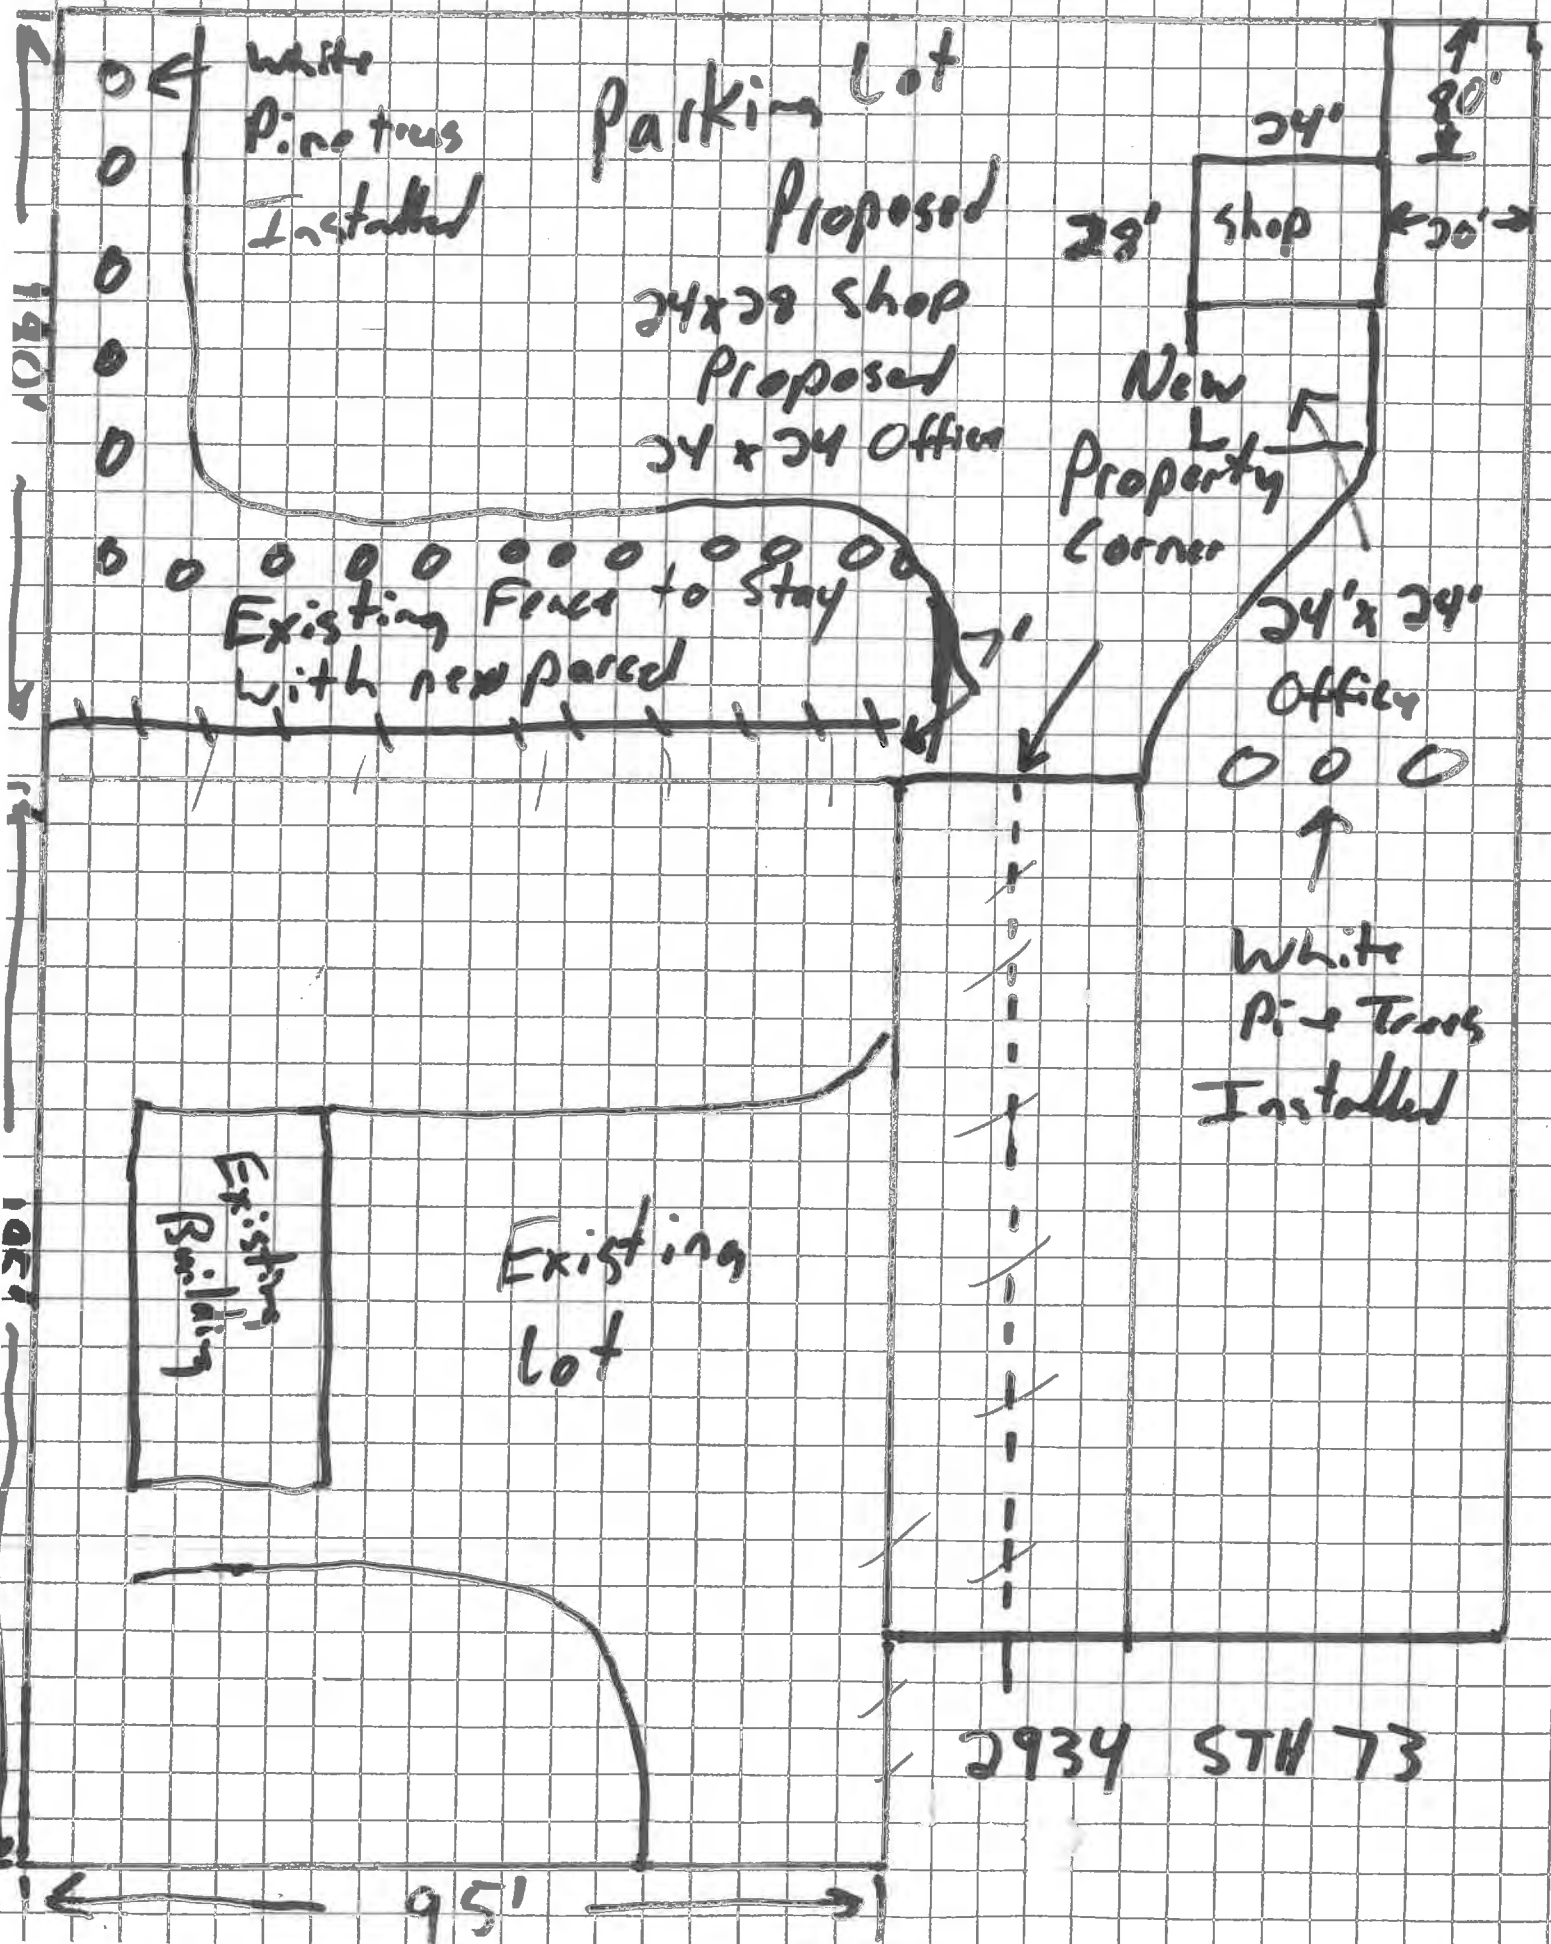 White
Pine trees
Installed
Parking Lot
Proposed
24x28 Shop
Proposed
24 x 24 Office
24'
28'
Shop
80'
20'
New
Property
Corner
24' x 24'
Office
Existing Fence to Stay
with new parcel
7'
190'
White
Pine Trees
Installed
Existing
Building
Existing
Lot
2934 STH 73
95'